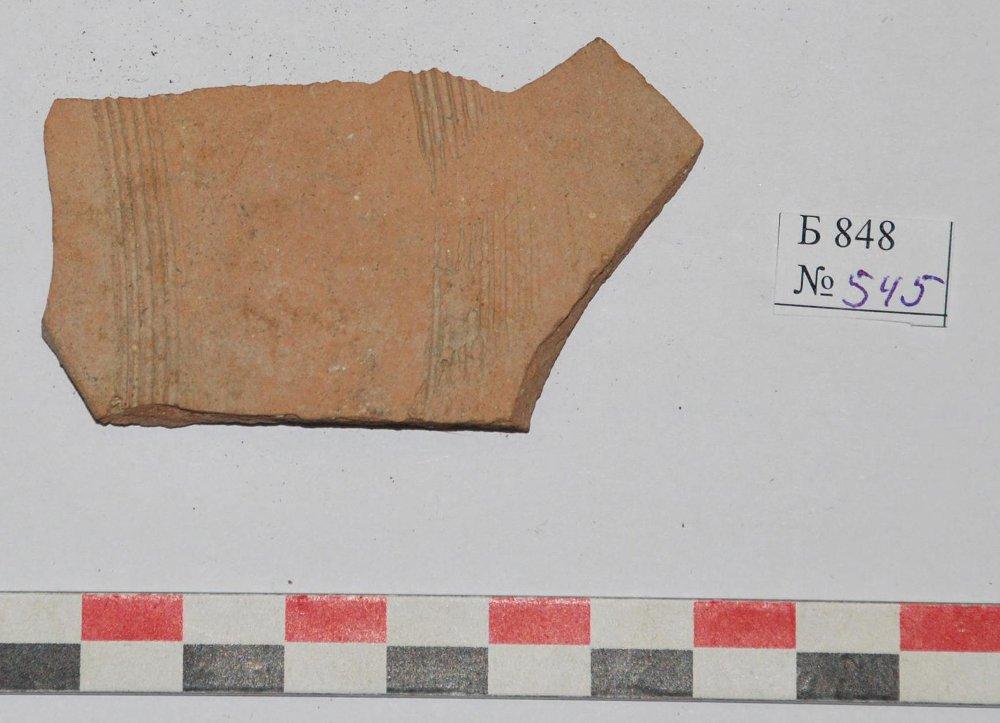 Б 848
№ 545